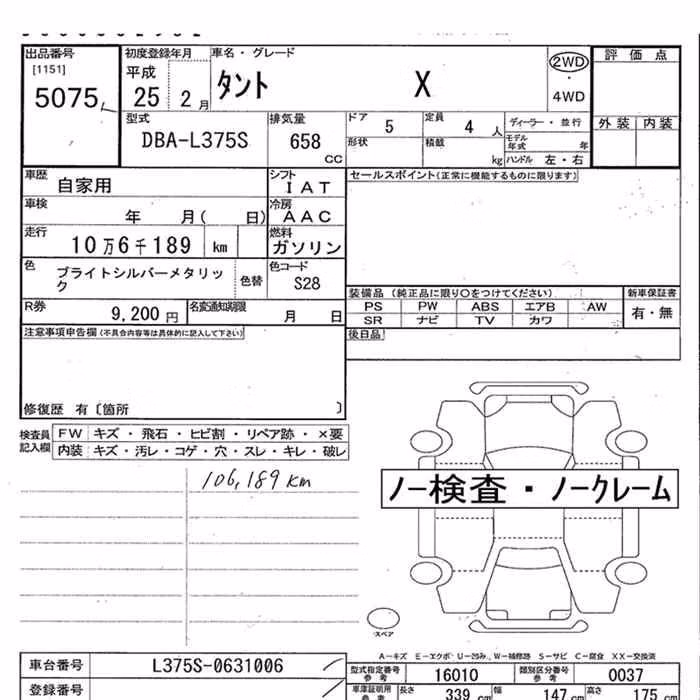 出品番号 初度登録年月 車名・グレード 評価点
[1151] 平成 タント X 2WD
5075 25 2月 ・
4WD
型式 排気量 ドア 5 定員 4人 ディーラー・並行 外装 内装
DBA-L375S 658 CC 形状 積載 kg モデル年式 年
ハンドル 左・右
車歴 自家用 シフト IAT セールスポイント(正常に機能するものに限ります)
車検 年 月( 日) 冷房 AAC
走行 10万6千189 km 燃料 ガソリン
色 ブライトシルバーメタリック 色替 色コード S28
装備品 (純正品に限り○をつけてください) 新車保証書
R券 9,200円 名変通知期限 月 日 PS PW ABS エアB AW 有・無
SR ナビ TV カワ
注意事項申告欄(不具合内容等は具体的に記入して下さい) 後日品
修復歴 有〔箇所 〕
検査員記入欄 FW キズ・飛石・ヒビ割・リペア跡・×要
内装 キズ・汚レ・コゲ・穴・スレ・キレ・破レ
106,189 km
ノー検査・ノークレーム
スペア
A-キズ E-エクボ U-凹み W-補修跡 S-サビ C-腐食 XX-交換済
車台番号 L375S-0631006 型式指定番号参考 16010 類別区分番号参考 0037
登録番号 車庫証明用参考 長さ 339 cm 幅 147 cm 高さ 175 cm